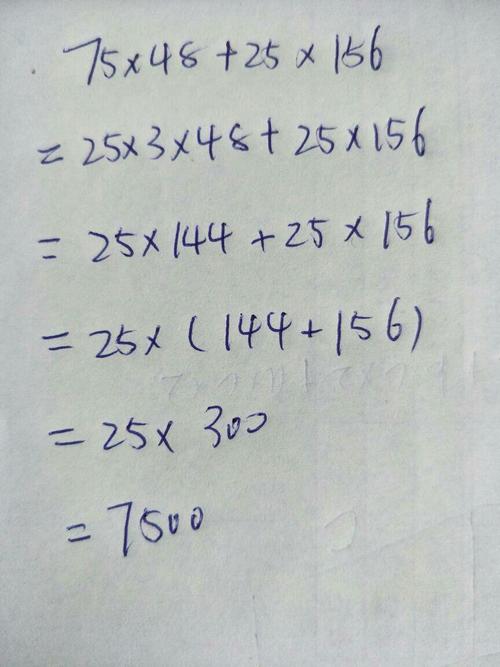 75×48+25×156
=25×3×48+25×156
=25×144+25×156
=25×(144+156)
=25×300
=7500